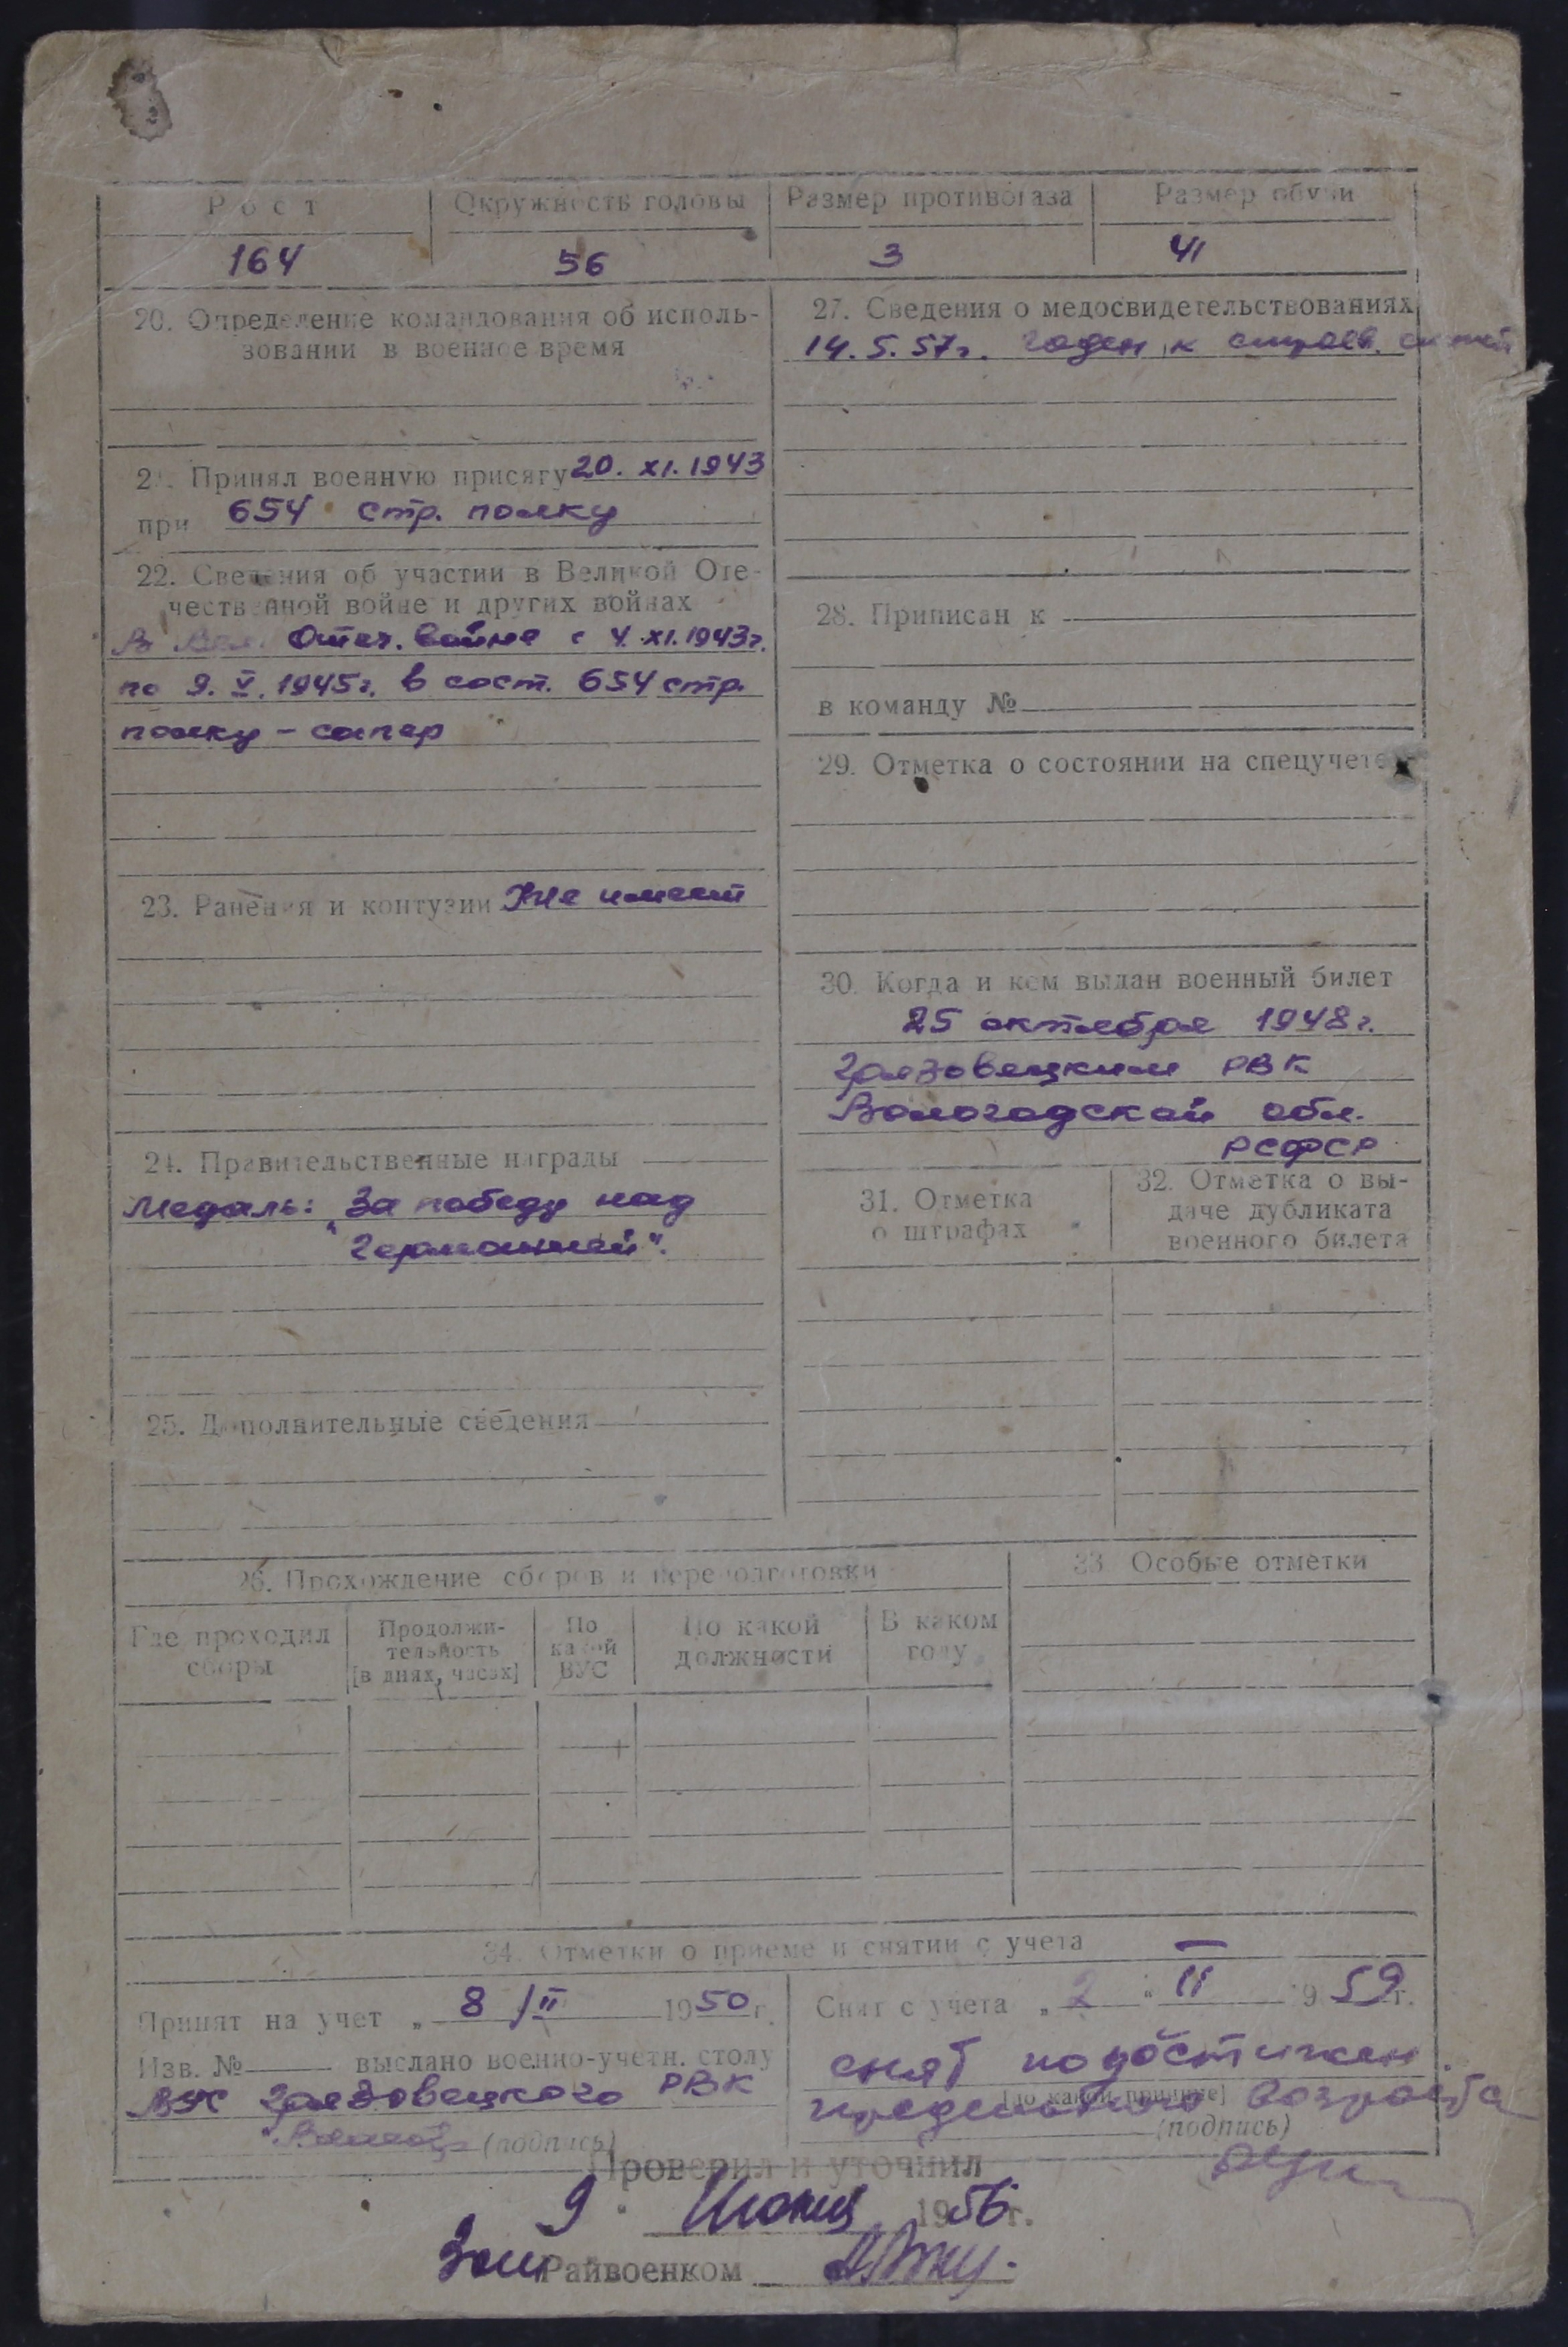 Рост Окружность головы Размер противогаза Размер обуви
164 56 3 41
20. Определение командования об исполь-
зовании в военное время
21. Принял военную присягу 20. XI. 1943
при 654 стр. полку
22. Сведения об участии в Великой Оте-
чественной войне и других войнах
В Вел. Отеч. войне с 4. XI. 1943г.
по 9. V. 1945г. в сост. 654 стр.
полку – сапер
23. Ранения и контузии Не имеет
24. Правительственные награды
Медаль: За победу над
"Германией".
25. Дополнительные сведения
27. Сведения о медосвидетельствованиях
14. 5. 57г. годен к строев.
28. Приписан к
в команду №
29. Отметка о состоянии на спецучете
30. Когда и кем выдан военный билет
25 октября 1948г.
Грязовецким РВК
Вологодской обл.
РСФСР
31. Отметка
о штрафах
32. Отметка о вы-
даче дубликата
военного билета
26. Прохождение сборов и переподготовки
Где проходил
сборы
Продолжи-
тельность
[в днях, часах]
По
какой
ВУС
По какой
должности
В каком
году
33. Особые отметки
34. Отметки о приеме и снятии с учета
Принят на учет „ 8 / II 1950 г.
Изв. № выслано военно-учетн. столу
ВУС Грязовецкого РВК
(подпись)
Снят с учета „ 2 " II 1959 г.
снят по достижен.
[по какой причине]
предельного возраста
(подпись)
Проверил и уточнил
9 Июня 1956 г.
Зам Райвоенком